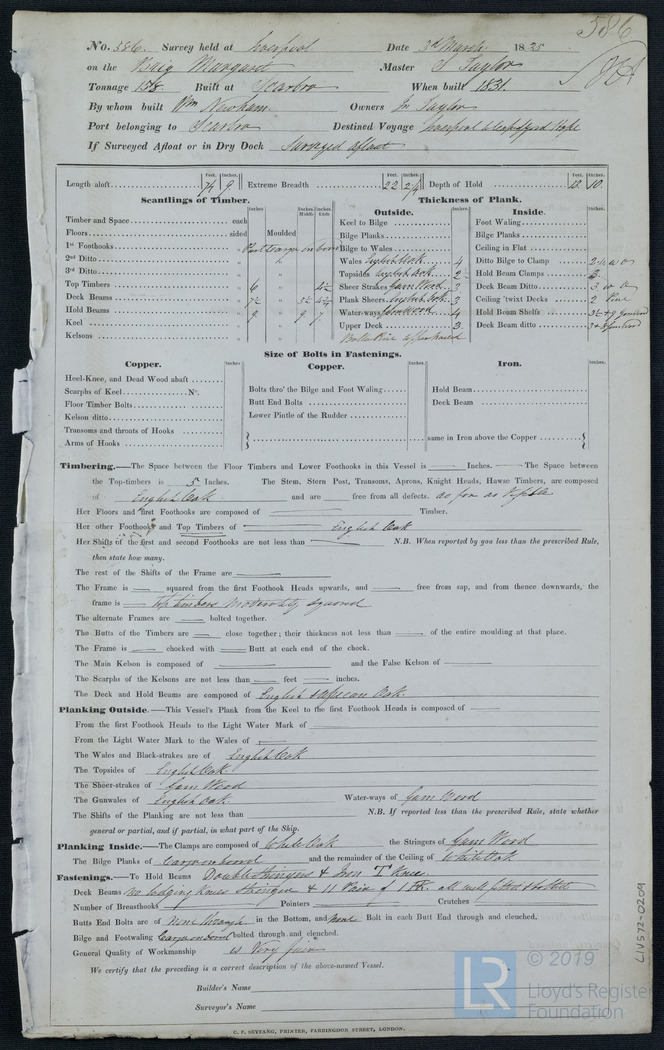 586
No. 586. Survey held at Liverpool Date 3d March 1835
on the Brig Margaret Master J Taylor
Tonnage 158 Built at Scarbro When built 1831.
By whom built Wm Newham Owners Jn Taylor
Port belonging to Scarbro Destined Voyage Liverpool
If Surveyed Afloat or in Dry Dock Surveyed afloat
Length aloft Feet. Inches. 9 Extreme Breadth Feet. Inches. 22 Depth of Hold Feet. Inches. 12 10
Scantlings of Timber. Thickness of Plank.
Outside. Inside.
Timber and Space each Keel to Bilge Foot Waling
Floors sided Moulded Bilge Planks Bilge Planks
1st Foothooks Cargo on board Bilge to Wales Ceiling in Flat
2nd Ditto Wales English Oak 4 Ditto Bilge to Clamp
3rd Ditto Topsides English Oak Hold Beam Clamps
Top Timbers 6 Sheer Strakes Gum Wood 3 Deck Beam Ditto 3
Deck Beams Plank Sheers English Oak 3 Ceiling 'twixt Decks 2 Pine
Hold Beams 9 9 7 Water-ways Gumwood 4 Hold Beam Shelfs
Keel Upper Deck 3 Deck Beam ditto
Kelsons
Size of Bolts in Fastenings.
Copper. Copper. Iron.
Heel-Knee, and Dead Wood abaft Bolts thro' the Bilge and Foot Waling Hold Beam
Scarphs of Keel No. Butt End Bolts Deck Beam
Floor Timber Bolts Lower Pintle of the Rudder
Kelson ditto
Transoms and throats of Hooks same in Iron above the Copper
Arms of Hooks
Timbering.—The Space between the Floor Timbers and Lower Foothooks in this Vessel is Inches. The Space between
the Top-timbers is 5 Inches. The Stem, Stern Post, Transoms, Aprons, Knight Heads, Hawse Timbers, are composed
of English Oak and are free from all defects. as far as Visible
Her Floors and first Foothooks are composed of Timber.
Her other Foothooks and Top Timbers of English Oak
Her Shifts of the first and second Foothooks are not less than N.B. When reported by you less than the prescribed Rule,
then state how many.
The rest of the Shifts of the Frame are
The Frame is squared from the first Foothook Heads upwards, and free from sap, and from thence downwards, the
frame is Top timbers Moderately squared
The alternate Frames are bolted together.
The Butts of the Timbers are close together; their thickness not less than of the entire moulding at that place.
The Frame is chocked with Butt at each end of the chock.
The Main Kelson is composed of and the False Kelson of
The Scarphs of the Kelsons are not less than feet inches.
The Deck and Hold Beams are composed of English & African Oak.
Planking Outside.—This Vessel's Plank from the Keel to the first Foothook Heads is composed of
From the first Foothook Heads to the Light Water Mark of
From the Light Water Mark to the Wales of
The Wales and Black-strakes are of English Oak
The Topsides of English Oak.
The Sheer-strakes of Gum Wood
The Gunwales of English Oak. Water-ways of Gum Wood
The Shifts of the Planking are not less than N.B. If reported less than the prescribed Rule, state whether
general or partial, and if partial, in what part of the Ship.
Planking Inside.—The Clamps are composed of White Oak the Stringers of Gum Wood
The Bilge Planks of Cargo on board and the remainder of the Ceiling of White Oak
Fastenings.—To Hold Beams Double Stringers & Iron T Knee
Deck Beams No lodging knees Stringer & 11 Pair of I Ks. all well fitted & bolted
Number of Breasthooks Pointers Crutches
Butts End Bolts are of None through in the Bottom, and None Bolt in each Butt End through and clenched.
Bilge and Footwaling Cargo on board bolted through and clenched.
General Quality of Workmanship is Very fair
We certify that the preceding is a correct description of the above-named Vessel.
Builder's Name
Surveyor's Name
C. F. SEYFANG, PRINTER, FARRINGDON STREET, LONDON.
LIV572-0209
LR © 2019
Lloyd's Register
Foundation